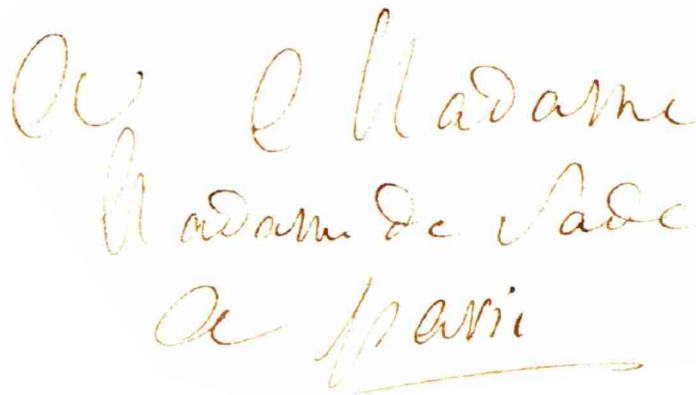 A Madame
Madame de Sade
a paris